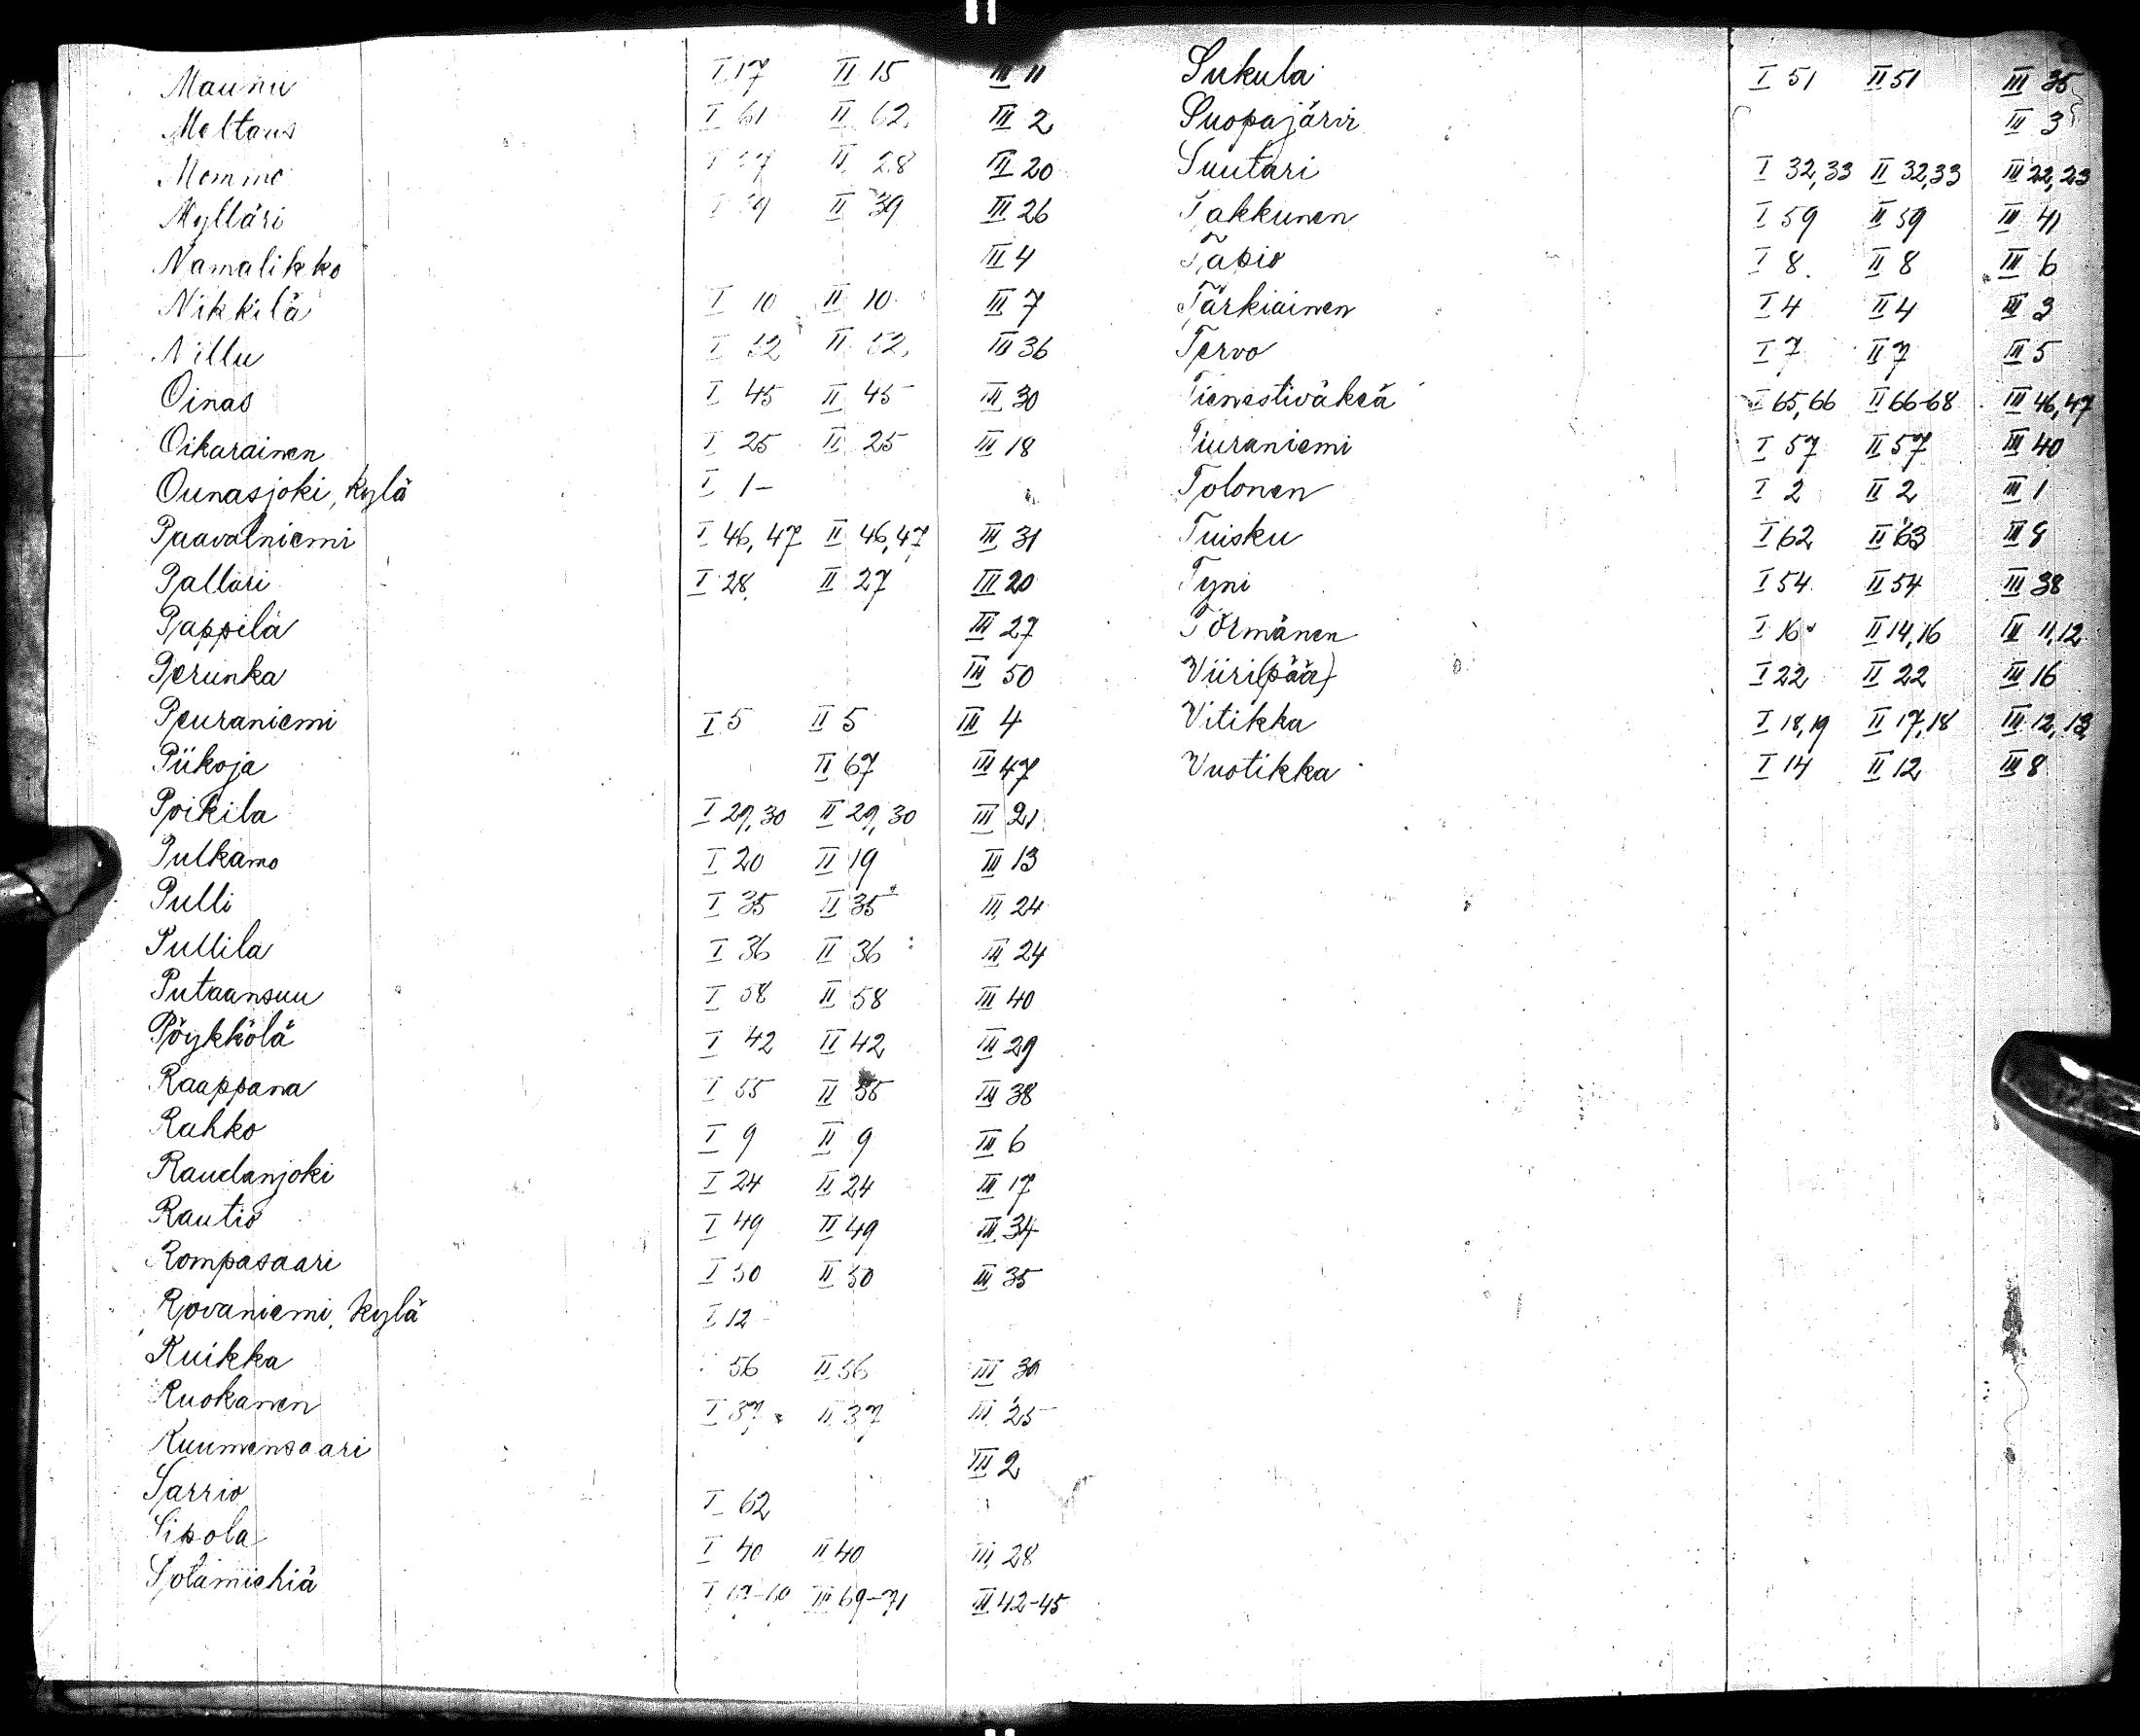 Maunu I 17 II 15 III 11
Meltaus I 61 II 62 III 2
Mommo II 28 III 20
Mylläri I 39 II 39 III 26
Namalikko III 4
Nikkilä I 10 II 10 III 7
Nillu I 52 II 52 III 36
Oinas I 45 II 45 III 30
Oikarainen I 25 II 25 III 18
Ounasjoki, kylä I 1-
Paavalniemi I 46, 47 II 46,47 III 31
Pallari I 28 II 27 III 20
Pappila III 27
Perunka III 50
Peuraniemi I 5 II 5 III 4
Piikoja II 67 III 47
Poikila I 29, 30 II 29, 30 III 21
Pulkamo I 20 II 19 III 13
Pulli I 35 II 35 III 24
Pullila I 36 II 36 III 24
Putaansuu I 58 II 58 III 40
Pöykkölä I 42 II 42 III 29
Raappana I 55 II 55 III 38
Rahko I 9 II 9 III 6
Raudanjoki I 24 II 24 III 17
Rautio I 49 II 49 III 34
Rompasaari I 50 II 50 III 35
Rovaniemi, kylä I 12
Ruikka 56 II 56 III 39
Ruokanen I 37 II 37 III 25
Kuumensaari III 2
Sarrio I 62
Sipola I 40 II 40 III 28
Sotamiehiä III 69-71 III 42-45
Sukula I 51 II 51 III 35
Suopajärvi III 3
Suutari I 32,33 II 32,33 III 22,23
Takkunen I 59 II 59 III 41
Tapio I 8 II 8 III 6
Tärkiäinen I 4 II 4 III 3
Tervo I 7 II 7 III 5
Tienestiväkeä I 65,66 II 66-68 III 46,47
Tiuraniemi I 57 II 57 III 40
Tolonen I 2 II 2 III 1
Tuisku I 62 II 63 III 8
Tyni I 54 II 54 III 38
Törmänen I 16 II 14,16 III 11,12
Viiri(pää) I 22 II 22 III 16
Vitikka I 18,19 II 17,18 III 12,13
Vuotikka I 14 II 12 III 8